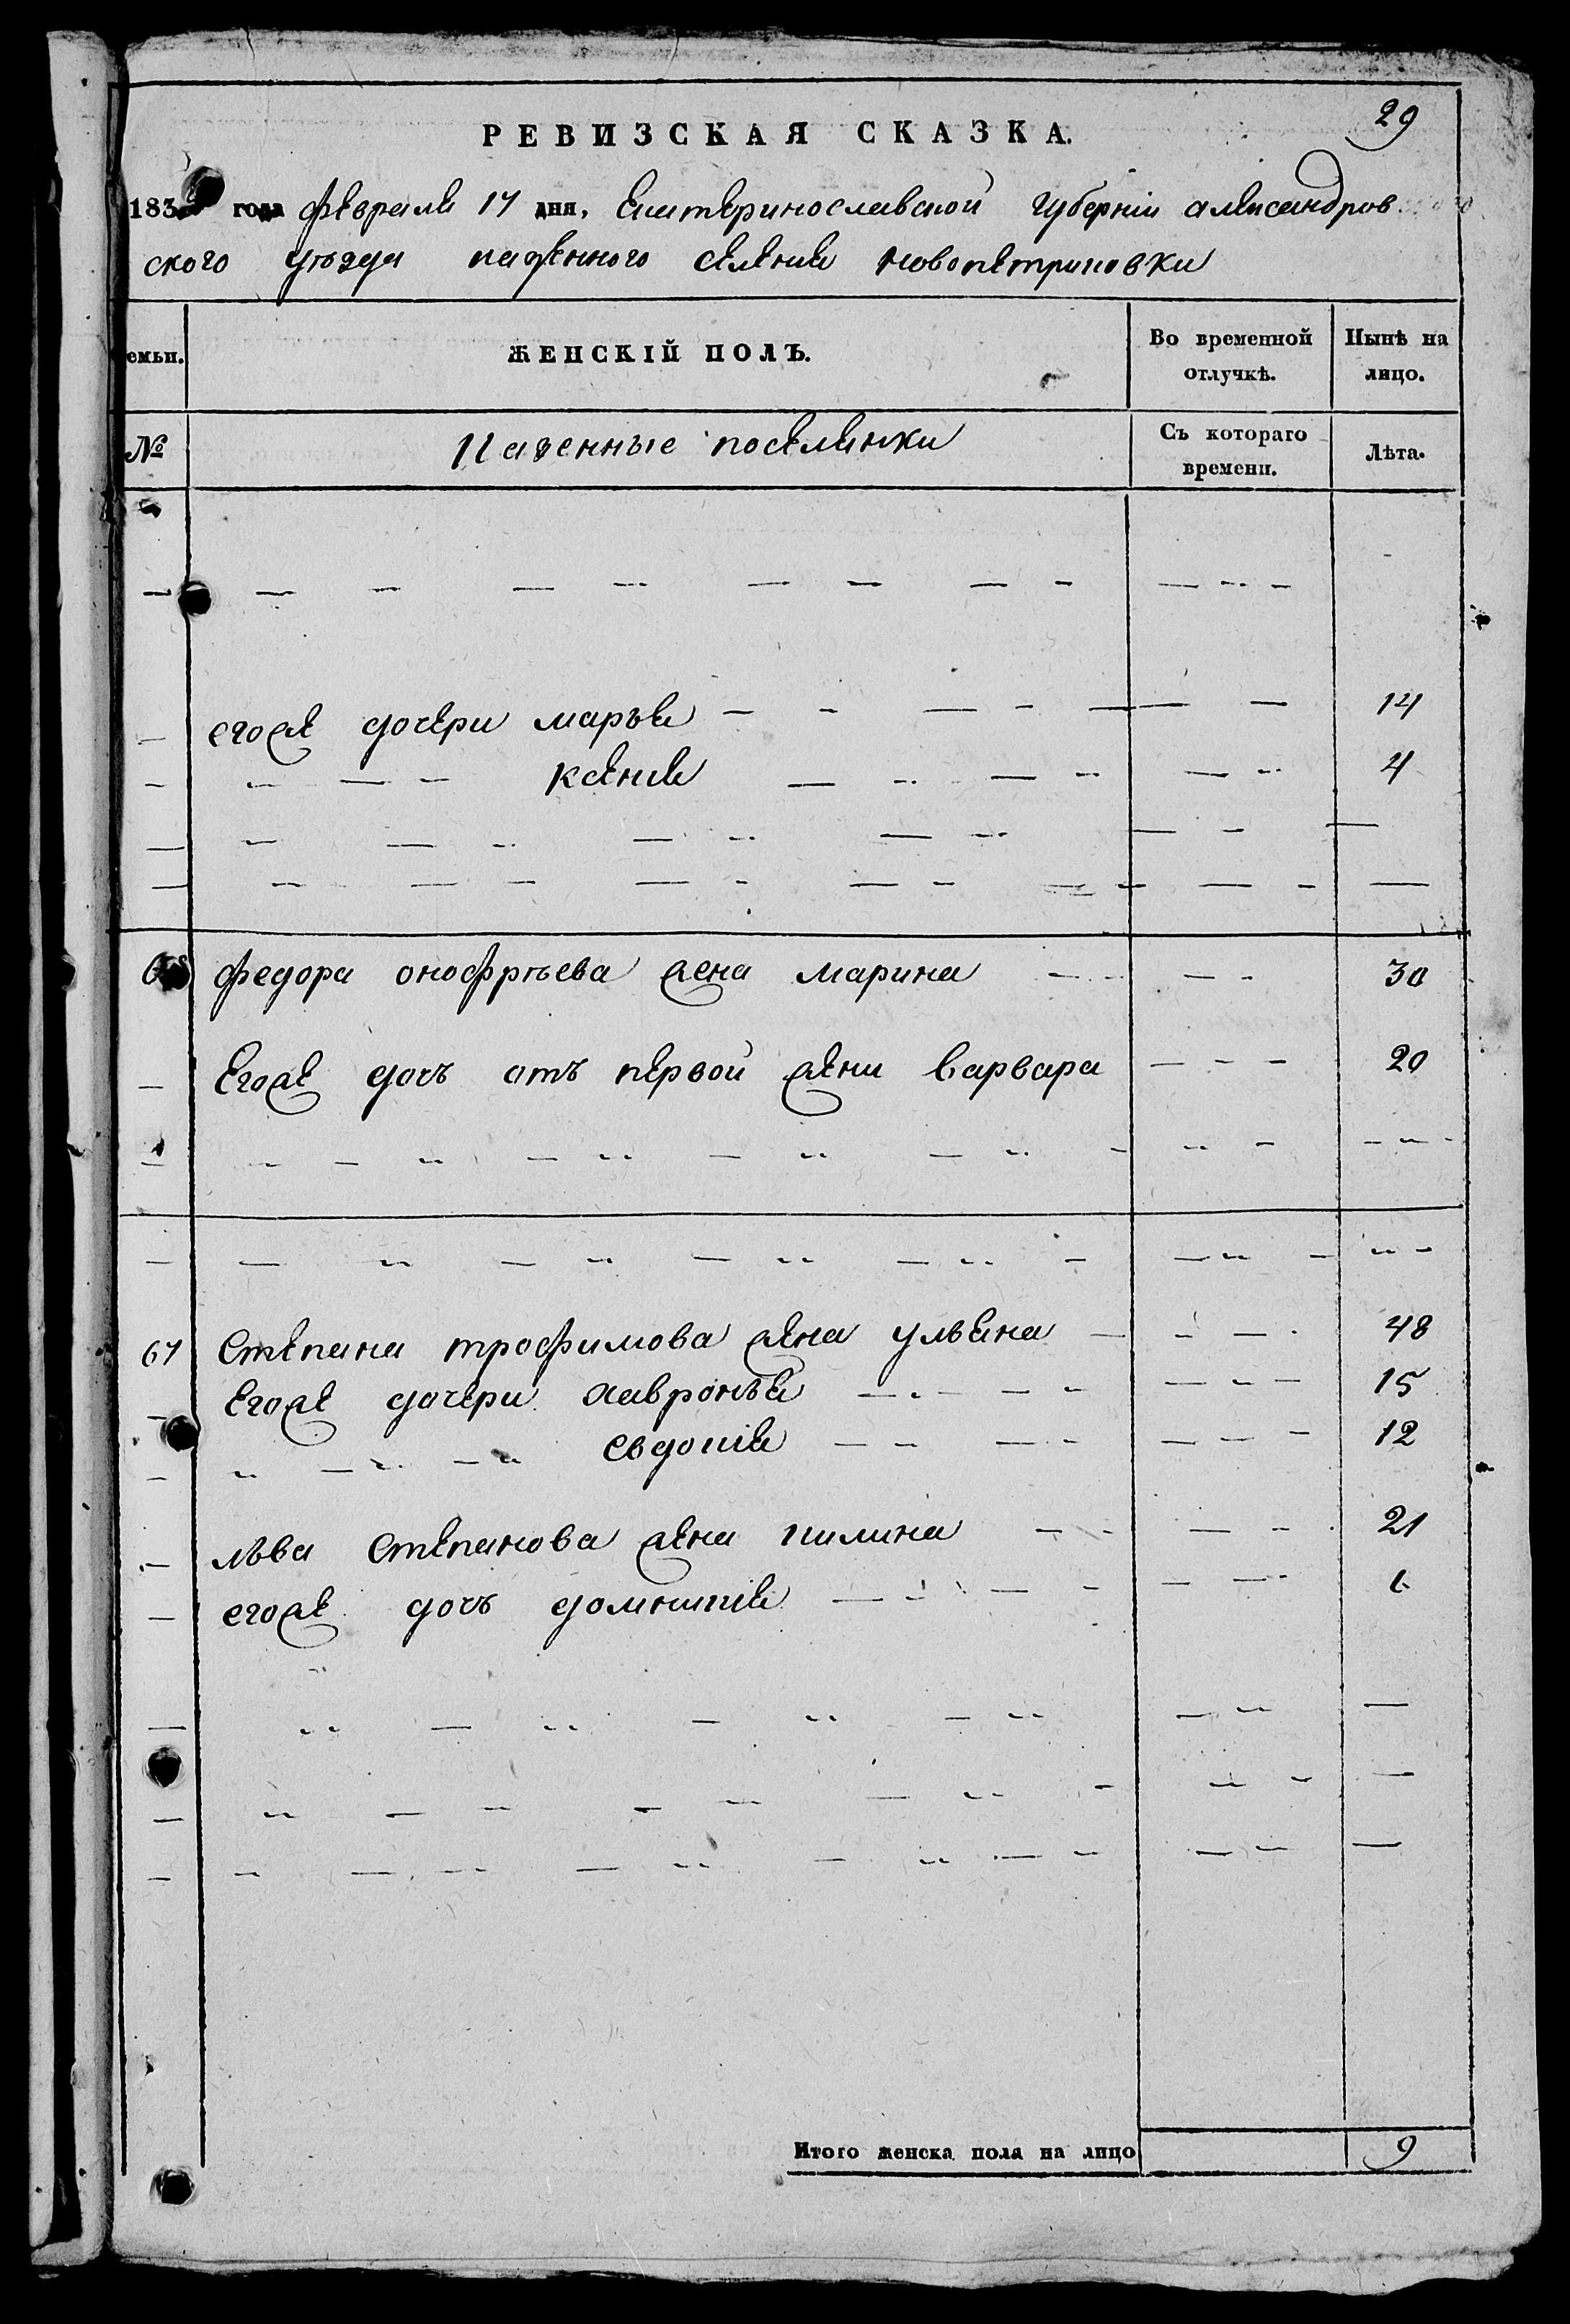 29
РЕВИЗСКАЯ СКАЗКА.
183 года февраля 17 дня, Екатеринославской губерніи александров
ского уѣзда казенного селения новопетриковки
емьи.
ЖЕНСКІЙ ПОЛЪ.
Во временной отлучкѣ.
Нынѣ на лицо.
№
Казенные поселянки
Съ котораго времени.
Лѣта.
егоже дочери марья 14
ксения 4
федора онофрѣева жена марина 30
Егоже дочь отъ первой жены варвара 20
67 Степана трофимова жена ульяна 48
Егоже дочери хавронья 15
Евдокия 12
льва Степанова жена килина 21
егоже дочь домникия 6
Итого женска поля на лицо 9